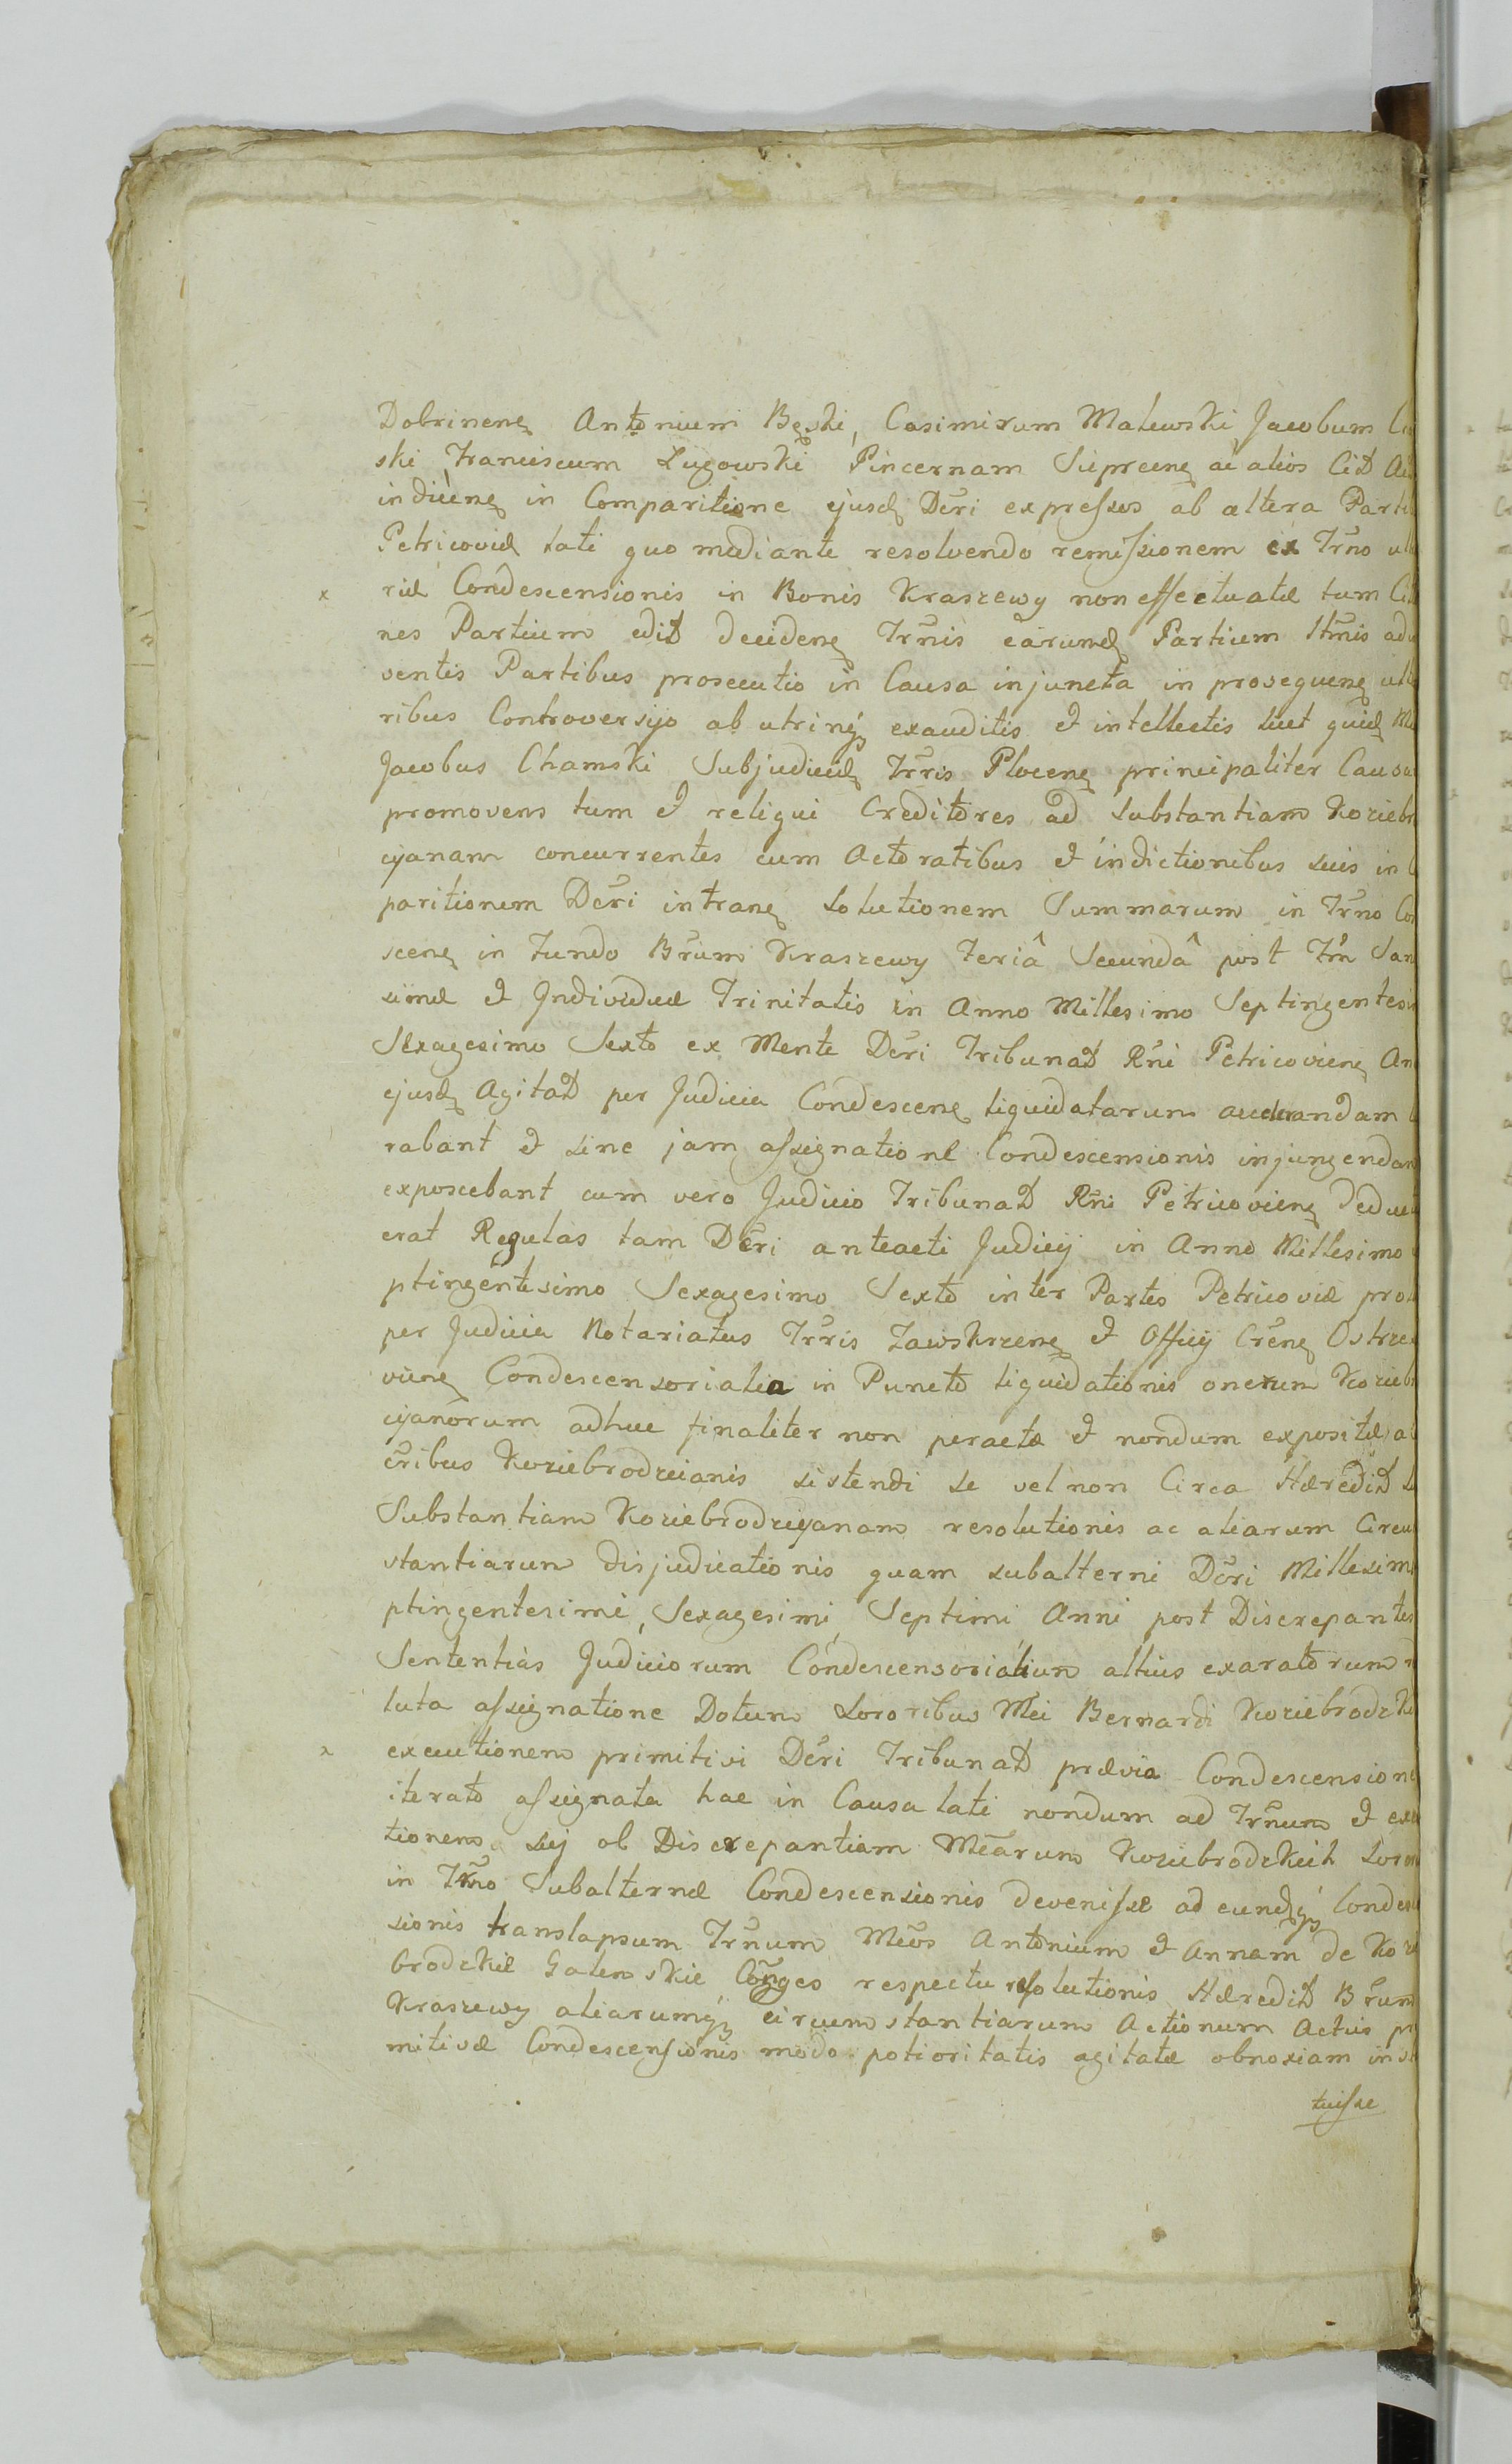 Dobrinenę Antonium Bęski, Casimirum Malewski Jacobum
ski Franciscum Ługowski Pincernam Sieprcenę ac alios Citt
indicenę in Comparitione ejusdę Dẽri expressos ab altera Parti
Petricoviæ lati quo mediante resolvendo remissionem ex Trño
riæ Condescensionis in Bonis Kraszewy non effectuatæ tum
nes Partium edit decidenę Trñis earumdę Partium
ventis Partibus prosecutio in Causa injuncta in prosequenę
ribus Controversijs ab utrinq́ exauditis et intellectis licet quidę
Jacobus Chamski Subjudicidę Trr̃is Plocenę principaliter Causa
promovens tum et reliqui Creditores ad Substantiam Koziebr
cyanam concurrentes cum Actoratibus et indictionibus suis in
paritionem Dẽri intranę Solutionem Summarum in Trño Con
scenę in Fundo Br̃um Kraszewy Feriâ Secundâ post Fm̃ San
simæ et Individuæ Trinitatis in Anno Millesimo Septingentesi
Sexagesimo Sexto ex Mente Dẽri Tribunat Rñi Petricovienę An
ejusdę Agitat per Judicia Condescenę liquidatarum
rabant et sine jam assignatione Condescensionis injungendam
exposcebant cum vero Judicio Tribunat Rñi Petricovienę Deduct
erat Regulas tam Dẽri anteacti Judicij in Anno Millesimo
ptingentesimo Sexagesimo Sexto inter Partes Petricoviæ pro
per Judicia Notariatus Trr̃is Zawskrzenę et Officij Crẽnę Ostrze
vienę Condescensorialia in Puncto liquidationis onerum Koziebr
cyanorum adhuc finaliter non peractæ et nondum expositæ a
cr̃ibus Koziebrodzcianis sistendi se vel non Circa Hæredit
Substantiam Koziebrodzcyanam resolutionis ac aliarum Circum
stantiarum disjudicationis quam subalterni Dẽri Millesimi
ptingentesimi, Sexagesimi, Septimi Anni post Discrepantes
Sententias Judiciorum Condescensorialium altius exaratorum
luta assignatione Dotum Sororibus Mẽi Bernardi Koziebrodzki
executionem primitivi Dẽri Tribunat prævia Condescensione
iterato assignata hac in Causa lati nondum ad Trñum et exe
tionem sij ob Discrepantiam Mẽarum Koziebrodzkich Soror
in Trño Subalternæ Condescensionis devenisse ad eundęq́ Condes
sionis translapsum Trñum Mẽos Antonium et Annam de Kozie
brodzkie Galenskie Coñges respectu resolutionis Hæredit Br̃um
Kraszewy aliarumq́ circumstantiarum Actionum Actus pri
mitivæ Condescensionis modo potioritatis agitatæ obnoxiam
tuisse